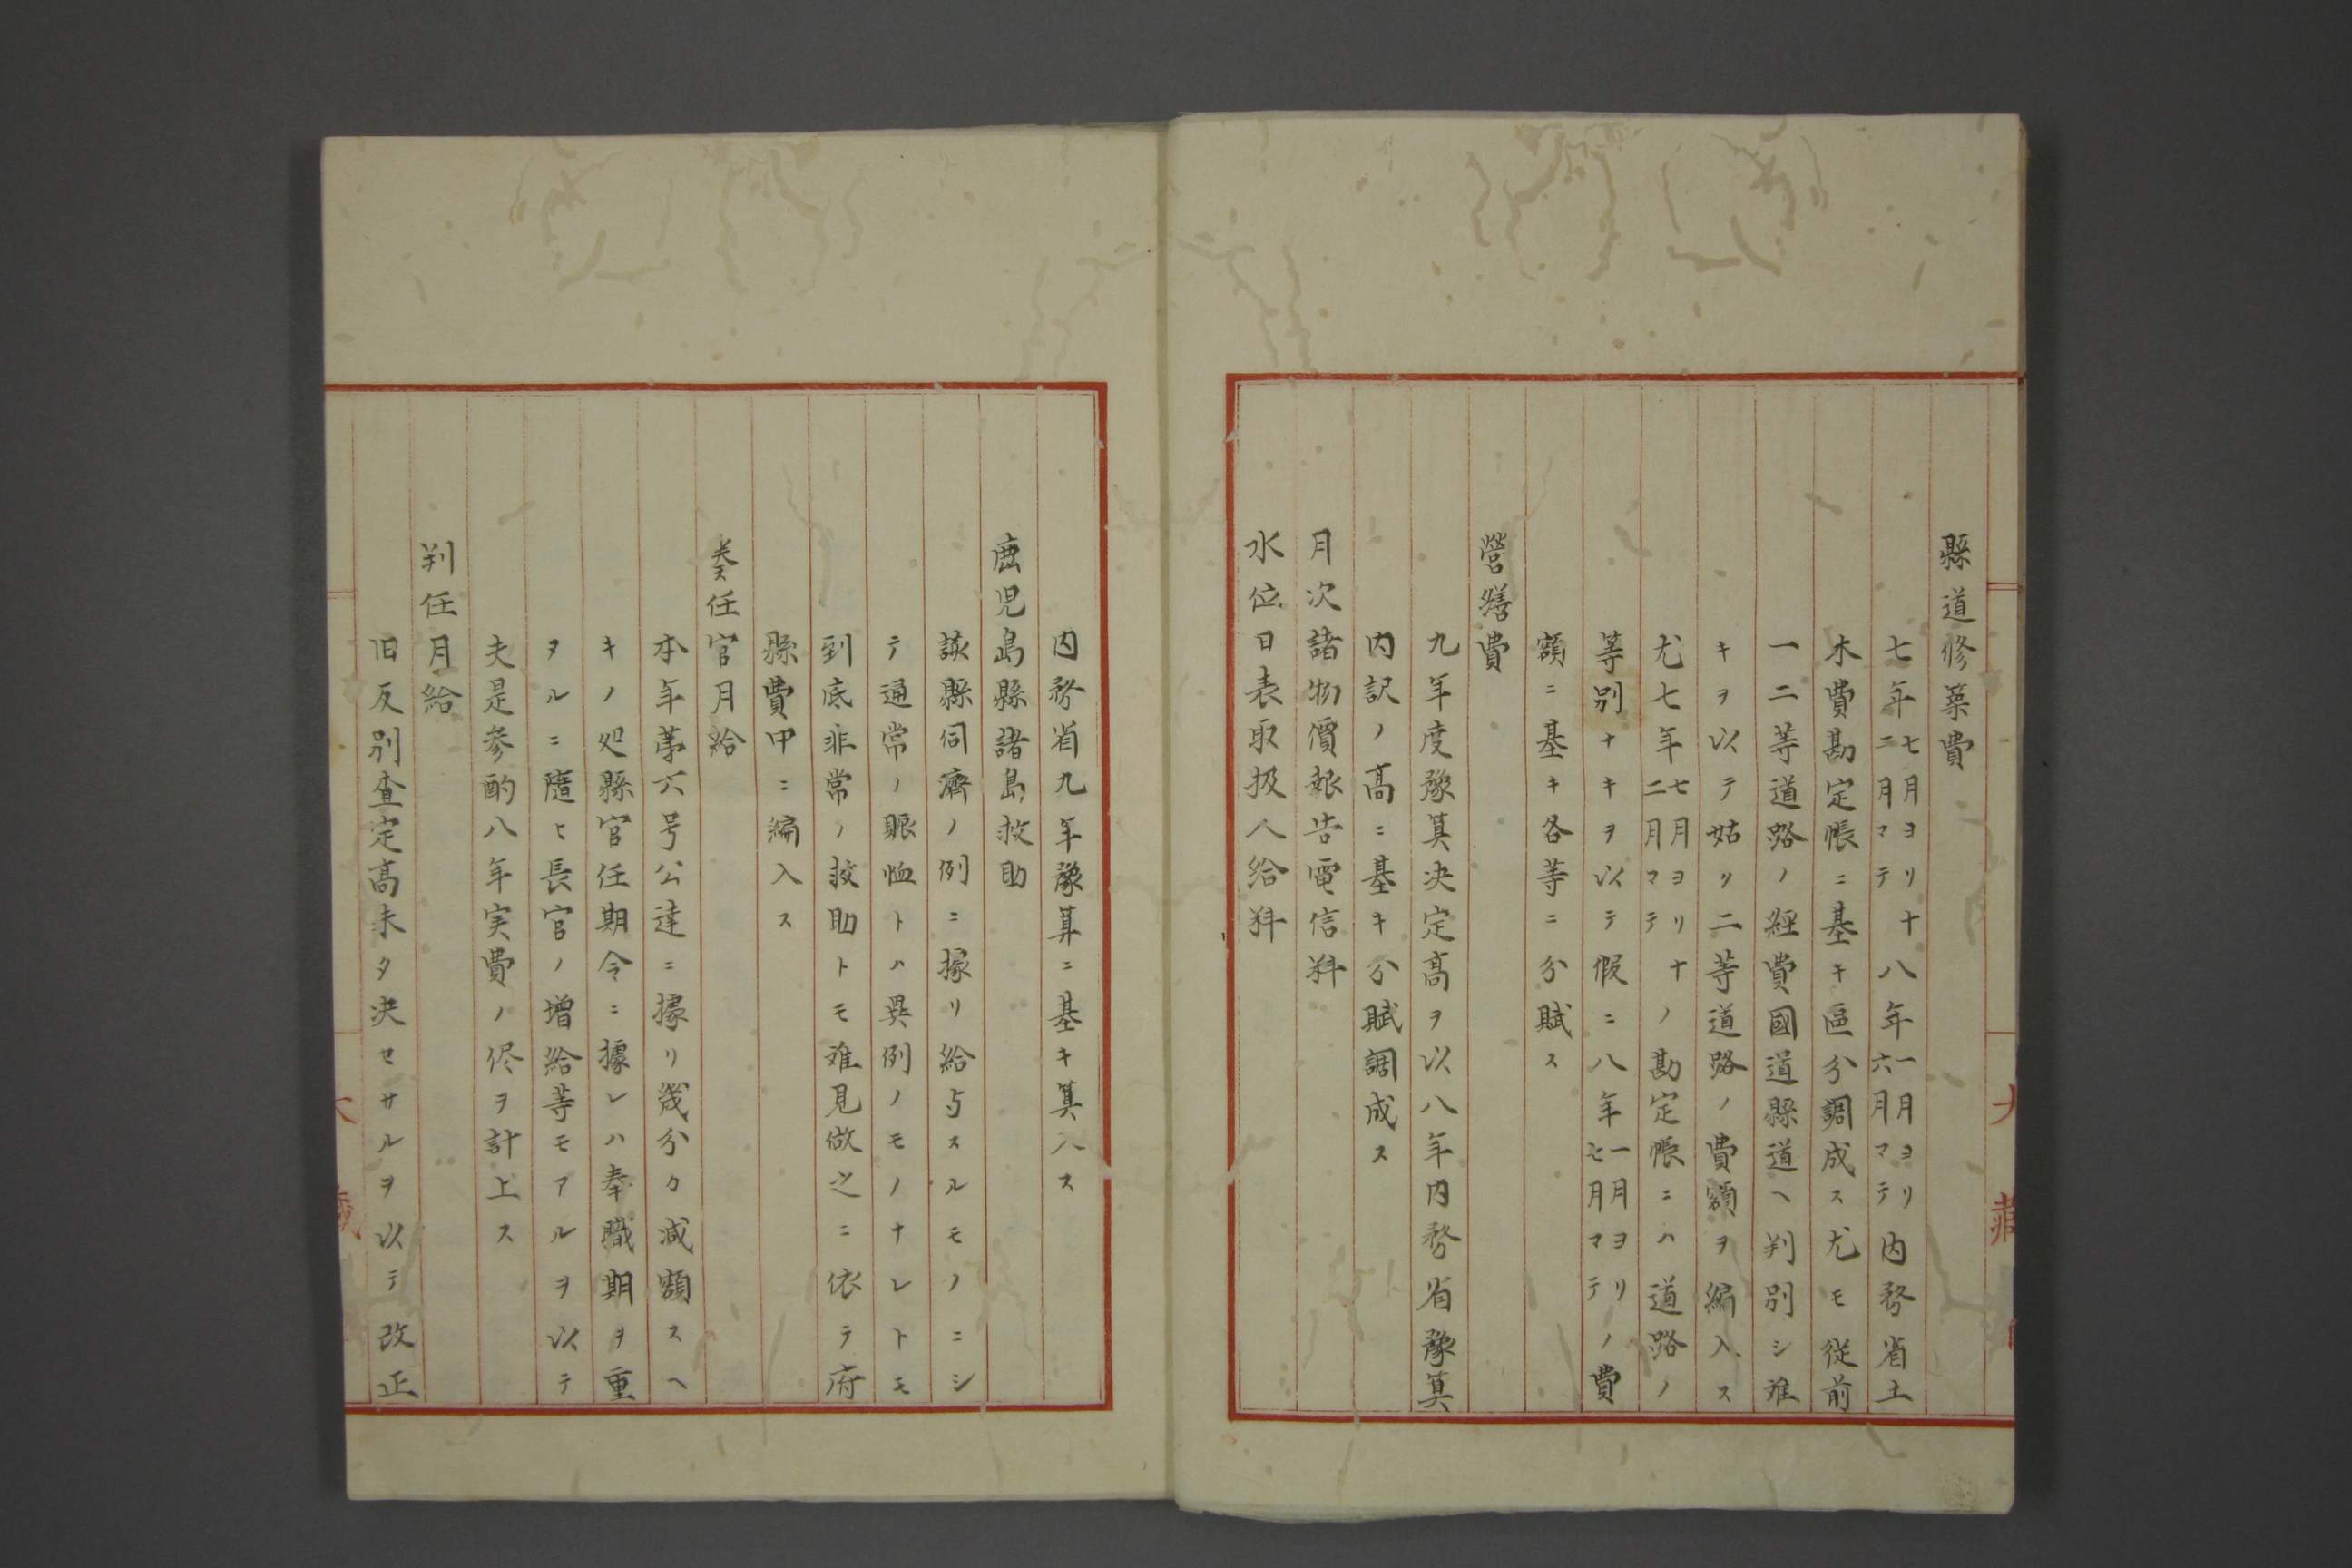 縣道修築費
七年七月ヨリ十二月マテ八年一月ヨリ六月マテ内務省土
木費勘定帳ニ基キ區分調成ス尤モ従前
一二等道路ノ経費國道縣道ヘ判別シ難
キヲ以テ姑ク二等道路ノ費額ヲ編入ス
尤七年七月ヨリ十二月マテノ勘定帳ニハ道路ノ
等別ナキヲ以テ假ニ八年一月ヨリ七月マテノ費
額ニ基キ各等ニ分賦ス
營繕費
九年度豫算决定高ヲ以八年内務省豫算
内訳ノ高ニ基キ分賦調成ス
月次諸物價報告電信料
水位日表取扱人給料
内務省九年豫算ニ基キ算入ス
鹿児島縣諸島救助
該縣伺濟ノ例ニ據リ給与スルモノニシ
テ通常ノ賑恤トハ異例ノモノナレトモ
到底非常ノ救助トモ难見做之ニ依テ府
縣費中ニ編入ス
奏任官月給
本年第六号公達ニ據リ幾分カ減額スヘ
キノ処縣官任期令ニ據レハ奉職期ヲ重
ヌルニ隨ヒ長官ノ增給等モアルヲ以テ
夫是参酌八年実費ノ侭ヲ計上ス
判任月給
旧反別査定高未タ决セサルヲ以テ改正
大藏
大藏